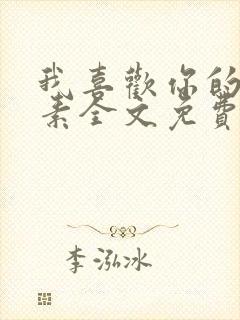 我喜歡你的
素全文免費
李泓冰